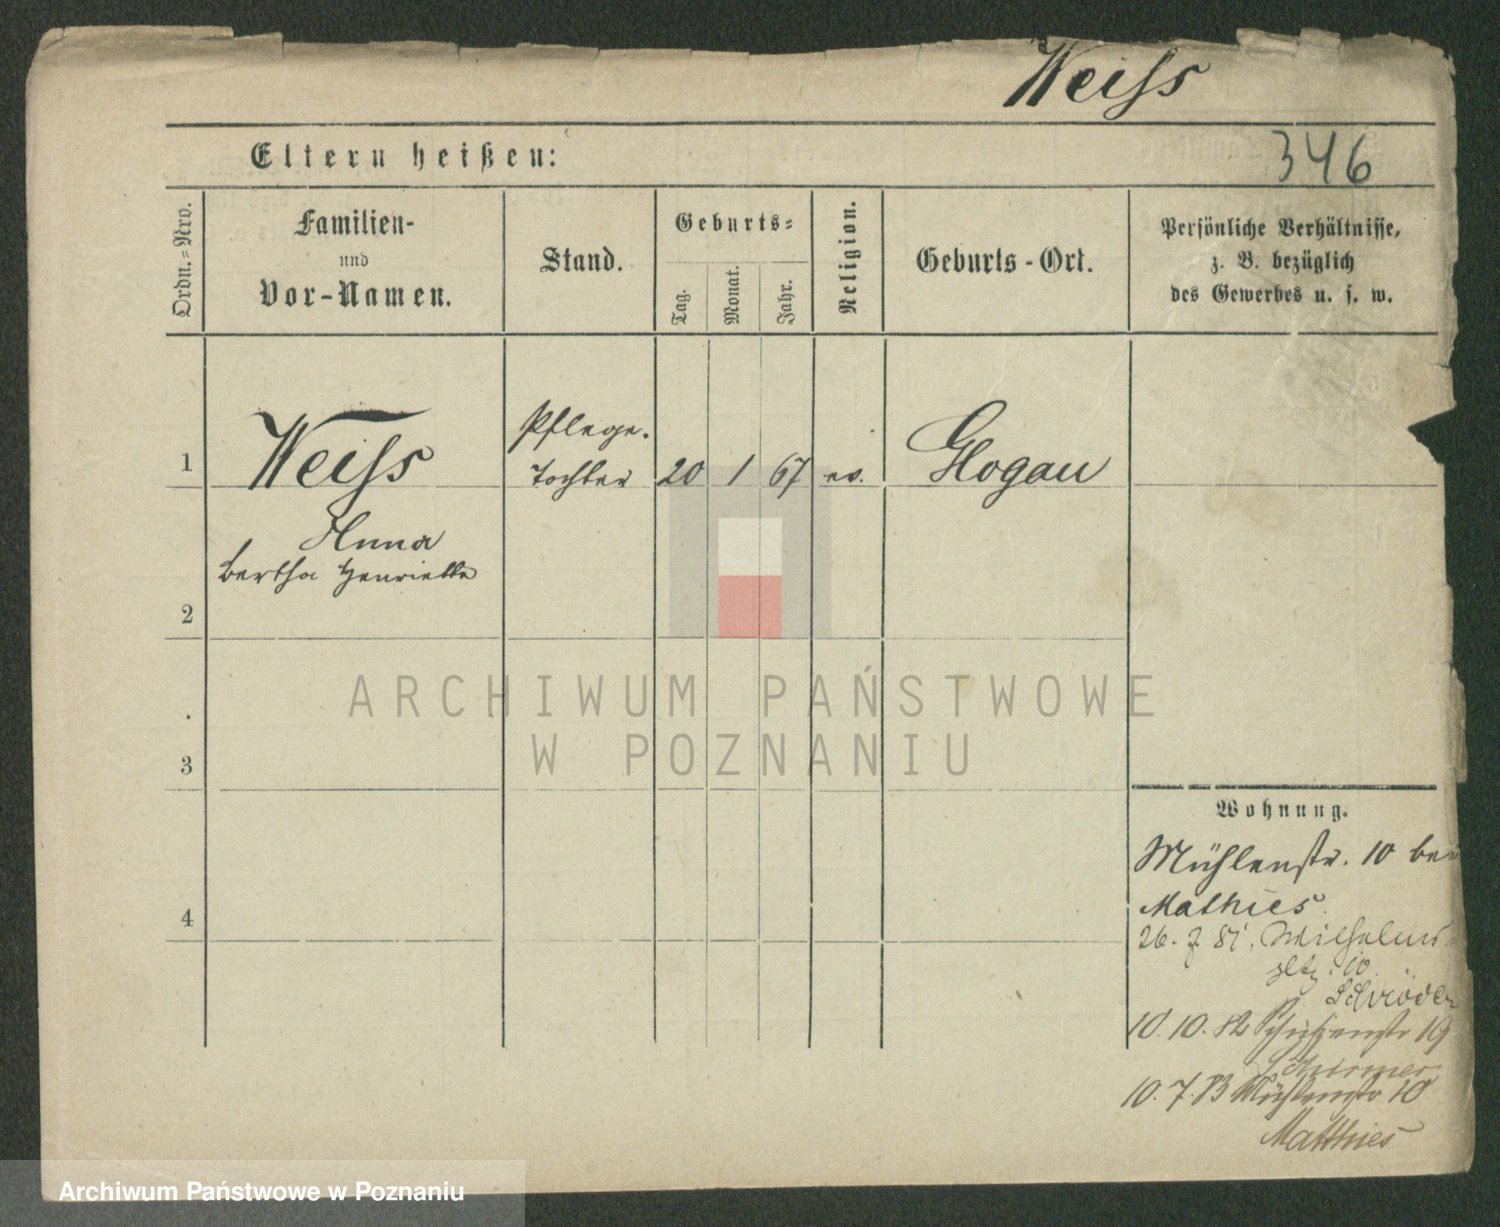 Weiss
Eltern heißen:
346
Ordn.-Nro.
Familien-
und
Vor-Namen.
Stand.
Geburts-
Tag.
Monat.
Jahr.
Religion.
Geburts-Ort.
Persönliche Verhältnisse,
z. B. bezüglich
des Gewerbes u. s. w.
1 Weiss Pflege-
tochter 20 1 67 ev. Glogau
Anna
Bertha Henriette
2
3
4
ARCHIWUM PAŃSTWOWE
W POZNANIU
Wohnung.
Mühlenstr. 10 bei
Mathies.
26. 7. 81. Wilhelms
pltz. 10.
Schröder
10. 10. 82 Schützenstr 19
Schirmer
10. 7. 83 Mühlenstr 10
Matthies
Archiwum Państwowe w Poznaniu